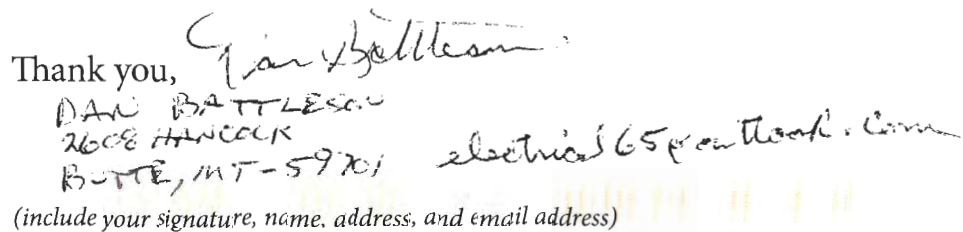 Thank you, Dan Battleson
DAN BATTLESON
2608 HANCOCK
BUTTE, MT - 59701 electrical65@outlook.com
(include your signature, name, address, and email address)